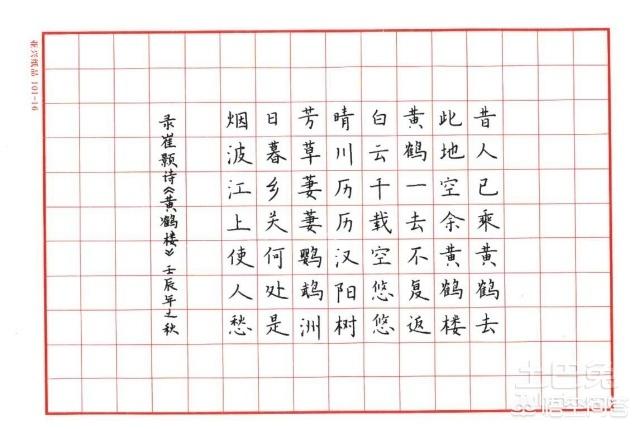 昔人已乘黄鹤去
此地空余黄鹤楼
黄鹤一去不复返
白云千载空悠悠
晴川历历汉阳树
芳草萋萋鹦鹉洲
日暮乡关何处是
烟波江上使人愁
录崔颢诗《黄鹤楼》壬辰年之秋
亚兴纸品 101-16
土巴兔
悟空问答